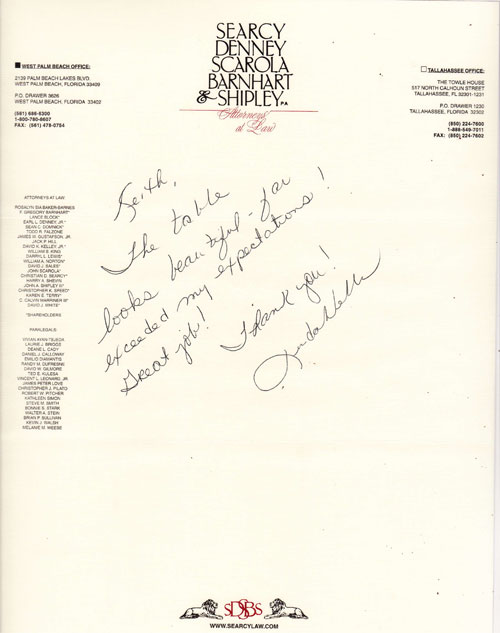 SEARCY
DENNEY
SCAROLA
BARNHART
& SHIPLEY PA
Attorneys
at Law
WEST PALM BEACH OFFICE:
2139 PALM BEACH LAKES BLVD.
WEST PALM BEACH, FLORIDA 33409
P.O. DRAWER 3626
WEST PALM BEACH, FLORIDA 33402
(561) 686-6300
1-800-780-8607
FAX: (561) 478-0754
TALLAHASSEE OFFICE:
THE TOWLE HOUSE
517 NORTH CALHOUN STREET
TALLAHASSEE, FL 32301-1231
P.O. DRAWER 1230
TALLAHASSEE, FLORIDA 32302
(850) 224-7600
1-888-549-7011
FAX: (850) 224-7602
Keith,
The table
looks beautiful - far
exceeded my expectations!
Great job!
Thank you!
ATTORNEYS AT LAW:
ROSALYN SIA BAKER-BARNES
F. GREGORY BARNHART*
LANCE BLOCK*
EARL L. DENNEY, JR.*
SEAN C. DOMNICK*
TODD R. FALZONE
JAMES W. GUSTAFSON, JR.
JACK P. HILL
DAVID K. KELLEY, JR.*
WILLIAM B. KING
DARRYL L. LEWIS*
WILLIAM A. NORTON*
DAVID J. SALES*
JOHN SCAROLA*
CHRISTIAN D. SEARCY*
HARRY A. SHEVIN
JOHN A. SHIPLEY III*
CHRISTOPHER K. SPEED*
KAREN E. TERRY*
C. CALVIN WARRINER III*
DAVID J. WHITE*
*SHAREHOLDERS
PARALEGALS:
VIVIAN AYAN-TEJEDA
LAURIE J. BRIGGS
DEANE L. CADY
DANIEL J. CALLOWAY
EMILIO DIAMANTIS
RANDY M. DUFRESNE
DAVID W. GILMORE
TED E. KULESA
VINCENT L. LEONARD, JR.
JAMES PETER LOVE
CHRISTOPHER J. PILATO
ROBERT W. PITCHER
KATHLEEN SIMON
STEVE M. SMITH
BONNIE S. STARK
WALTER A. STEIN
BRIAN P. SULLIVAN
KEVIN J. WALSH
MELANIE M. WEESE
SDSBS
WWW.SEARCYLAW.COM